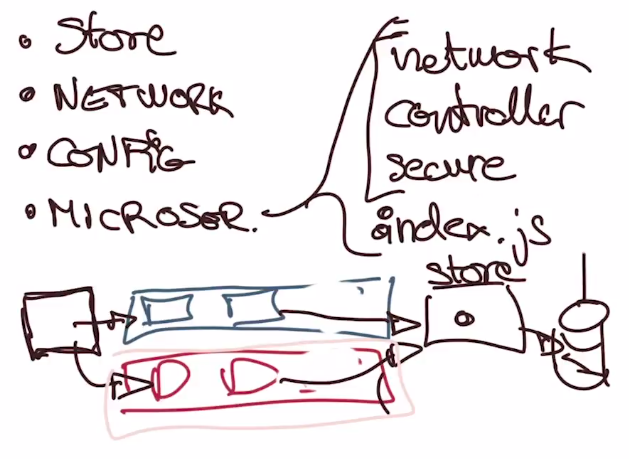 • Store
• NETWORK
• CONFIG
• MICROSER.
network
controller
secure
index.js
store